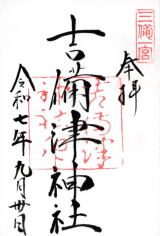 三備一宮
奉拝
吉備津神社
令和七年九月卅日